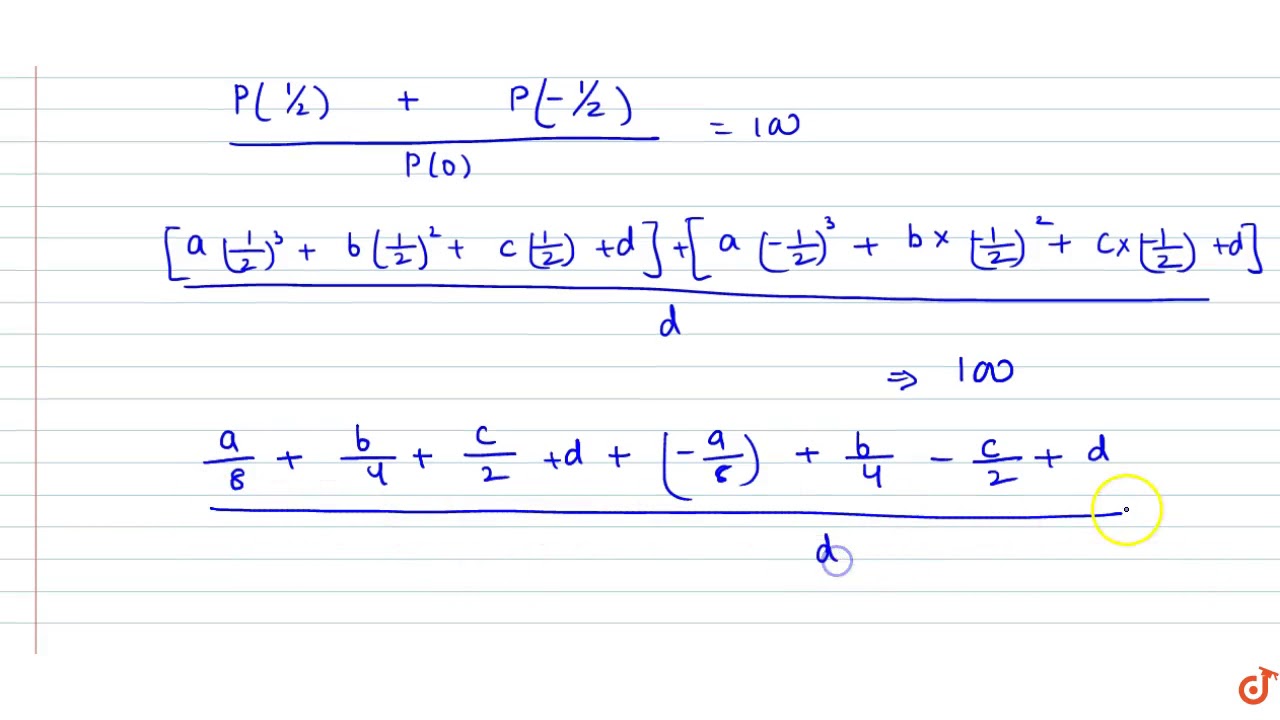 P(1/2) + P(-1/2)
P(0)
= 100
[a(1/2)³ + b(1/2)² + c(1/2) + d] + [a(-1/2)³ + b×(-1/2)² + c×(-1/2) + d]
d
⇒ 100
a/8 + b/4 + c/2 + d + (-a/8) + b/4 - c/2 + d
d